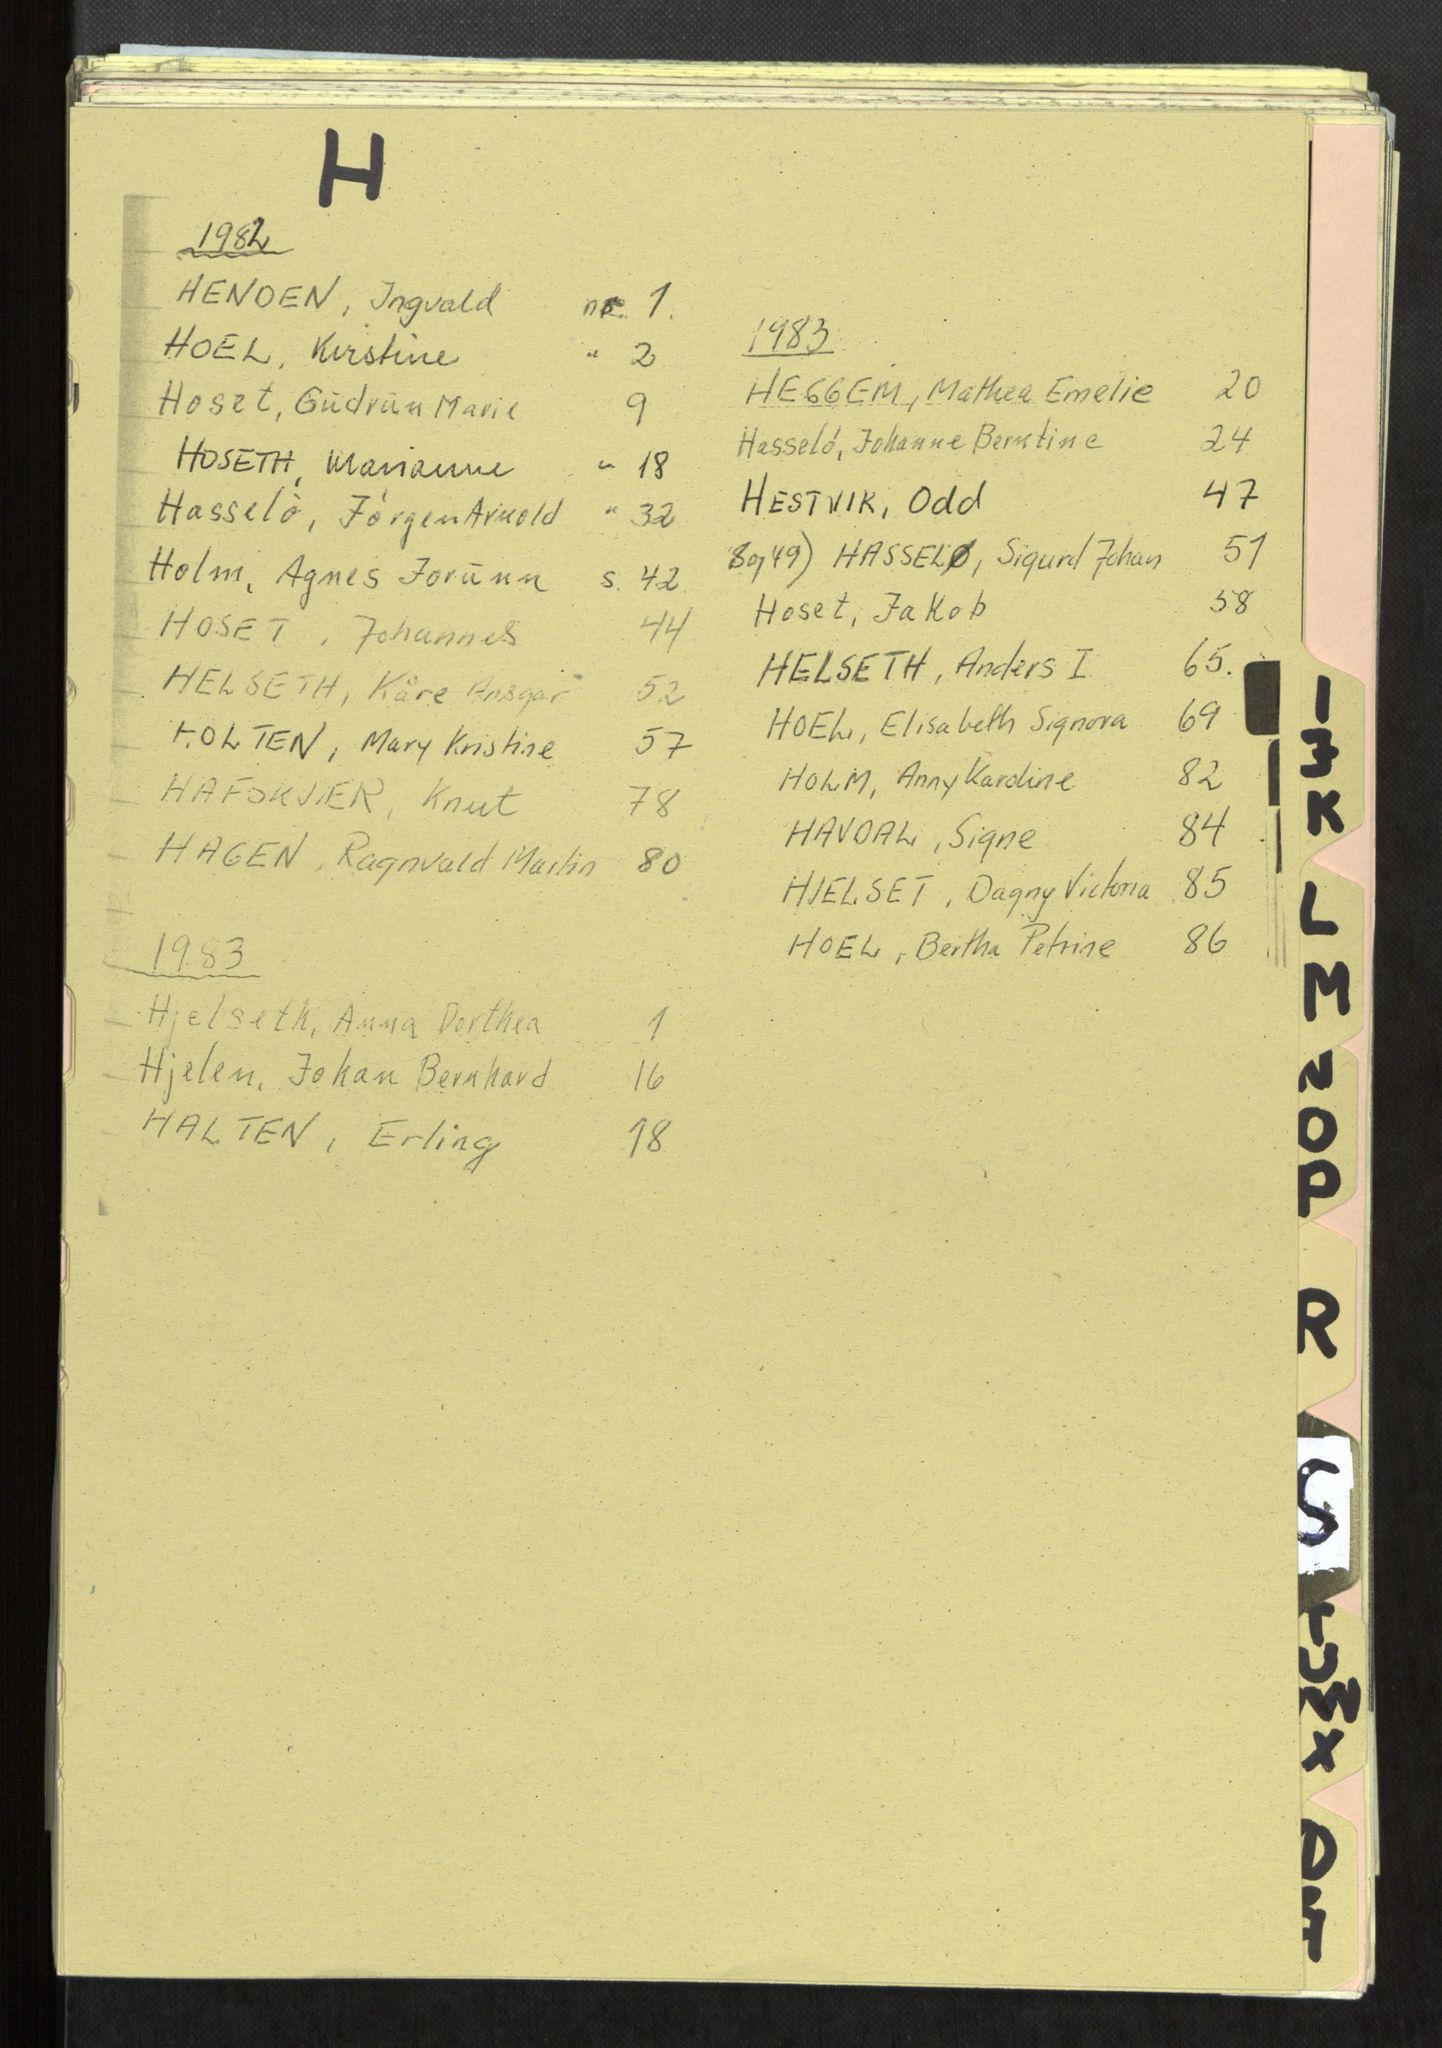 H
1982
HENDEN, Ingvald nr. 1.
HOEL, Kirstine " 2
Hoset, Gŭdrŭn Marie 9
HOSETH, Marianne " 18
Hasselö, Jörgen Arnold " 32
Holm, Agnes Jorŭnn s. 42
HOSET, Johannes 44
HELSETH, Kåre Ansgar 52
HOLTEN, Mary Kristine 57
HAFSKJÆR, Knut 78
HAGEN, Ragnvald Martin 80
1983
Hjelseth, Anna Dorthea 1
Hjelen, Johan Bernhard 16
HALTEN, Erling 18
1983
HEGGEM, Mathea Emelie 20
Hasselö, Johanne Berntine 24
HESTVIK, Odd 47
HASSELØ, Sigurd Johan 51
Hoset, Jakob 58
HELSETH, Anders I 65.
HOEL, Elisabeth Signora 69
HOLM, Anny Karoline 82
HAVDAL, Signe 84
HJELSET, Dagny Victoria 85
HOEL, Bertha Petrine 86
I
J
K
L
M
N
O
P
R
S
T
U
W
X